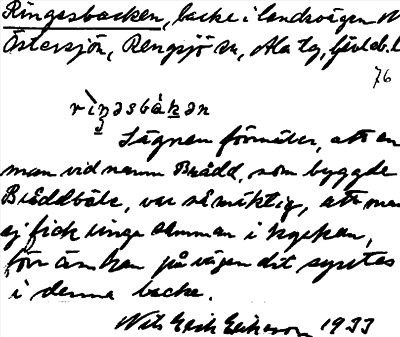 Ringsbacken, backe i landsvägen N
Östersjön, Rengsjö sn, Ala tg, Gävleb. l
76
rìŋəsbákən
Sägnen förmäler, att en
man vid namn Brådd, som byggde
Bråddböle, var så mäktig, att man
ej fick ringa samman i kyrkan,
förr än han på vägen dit syntes
i denna backe.
Nils Erik Erikson 1933